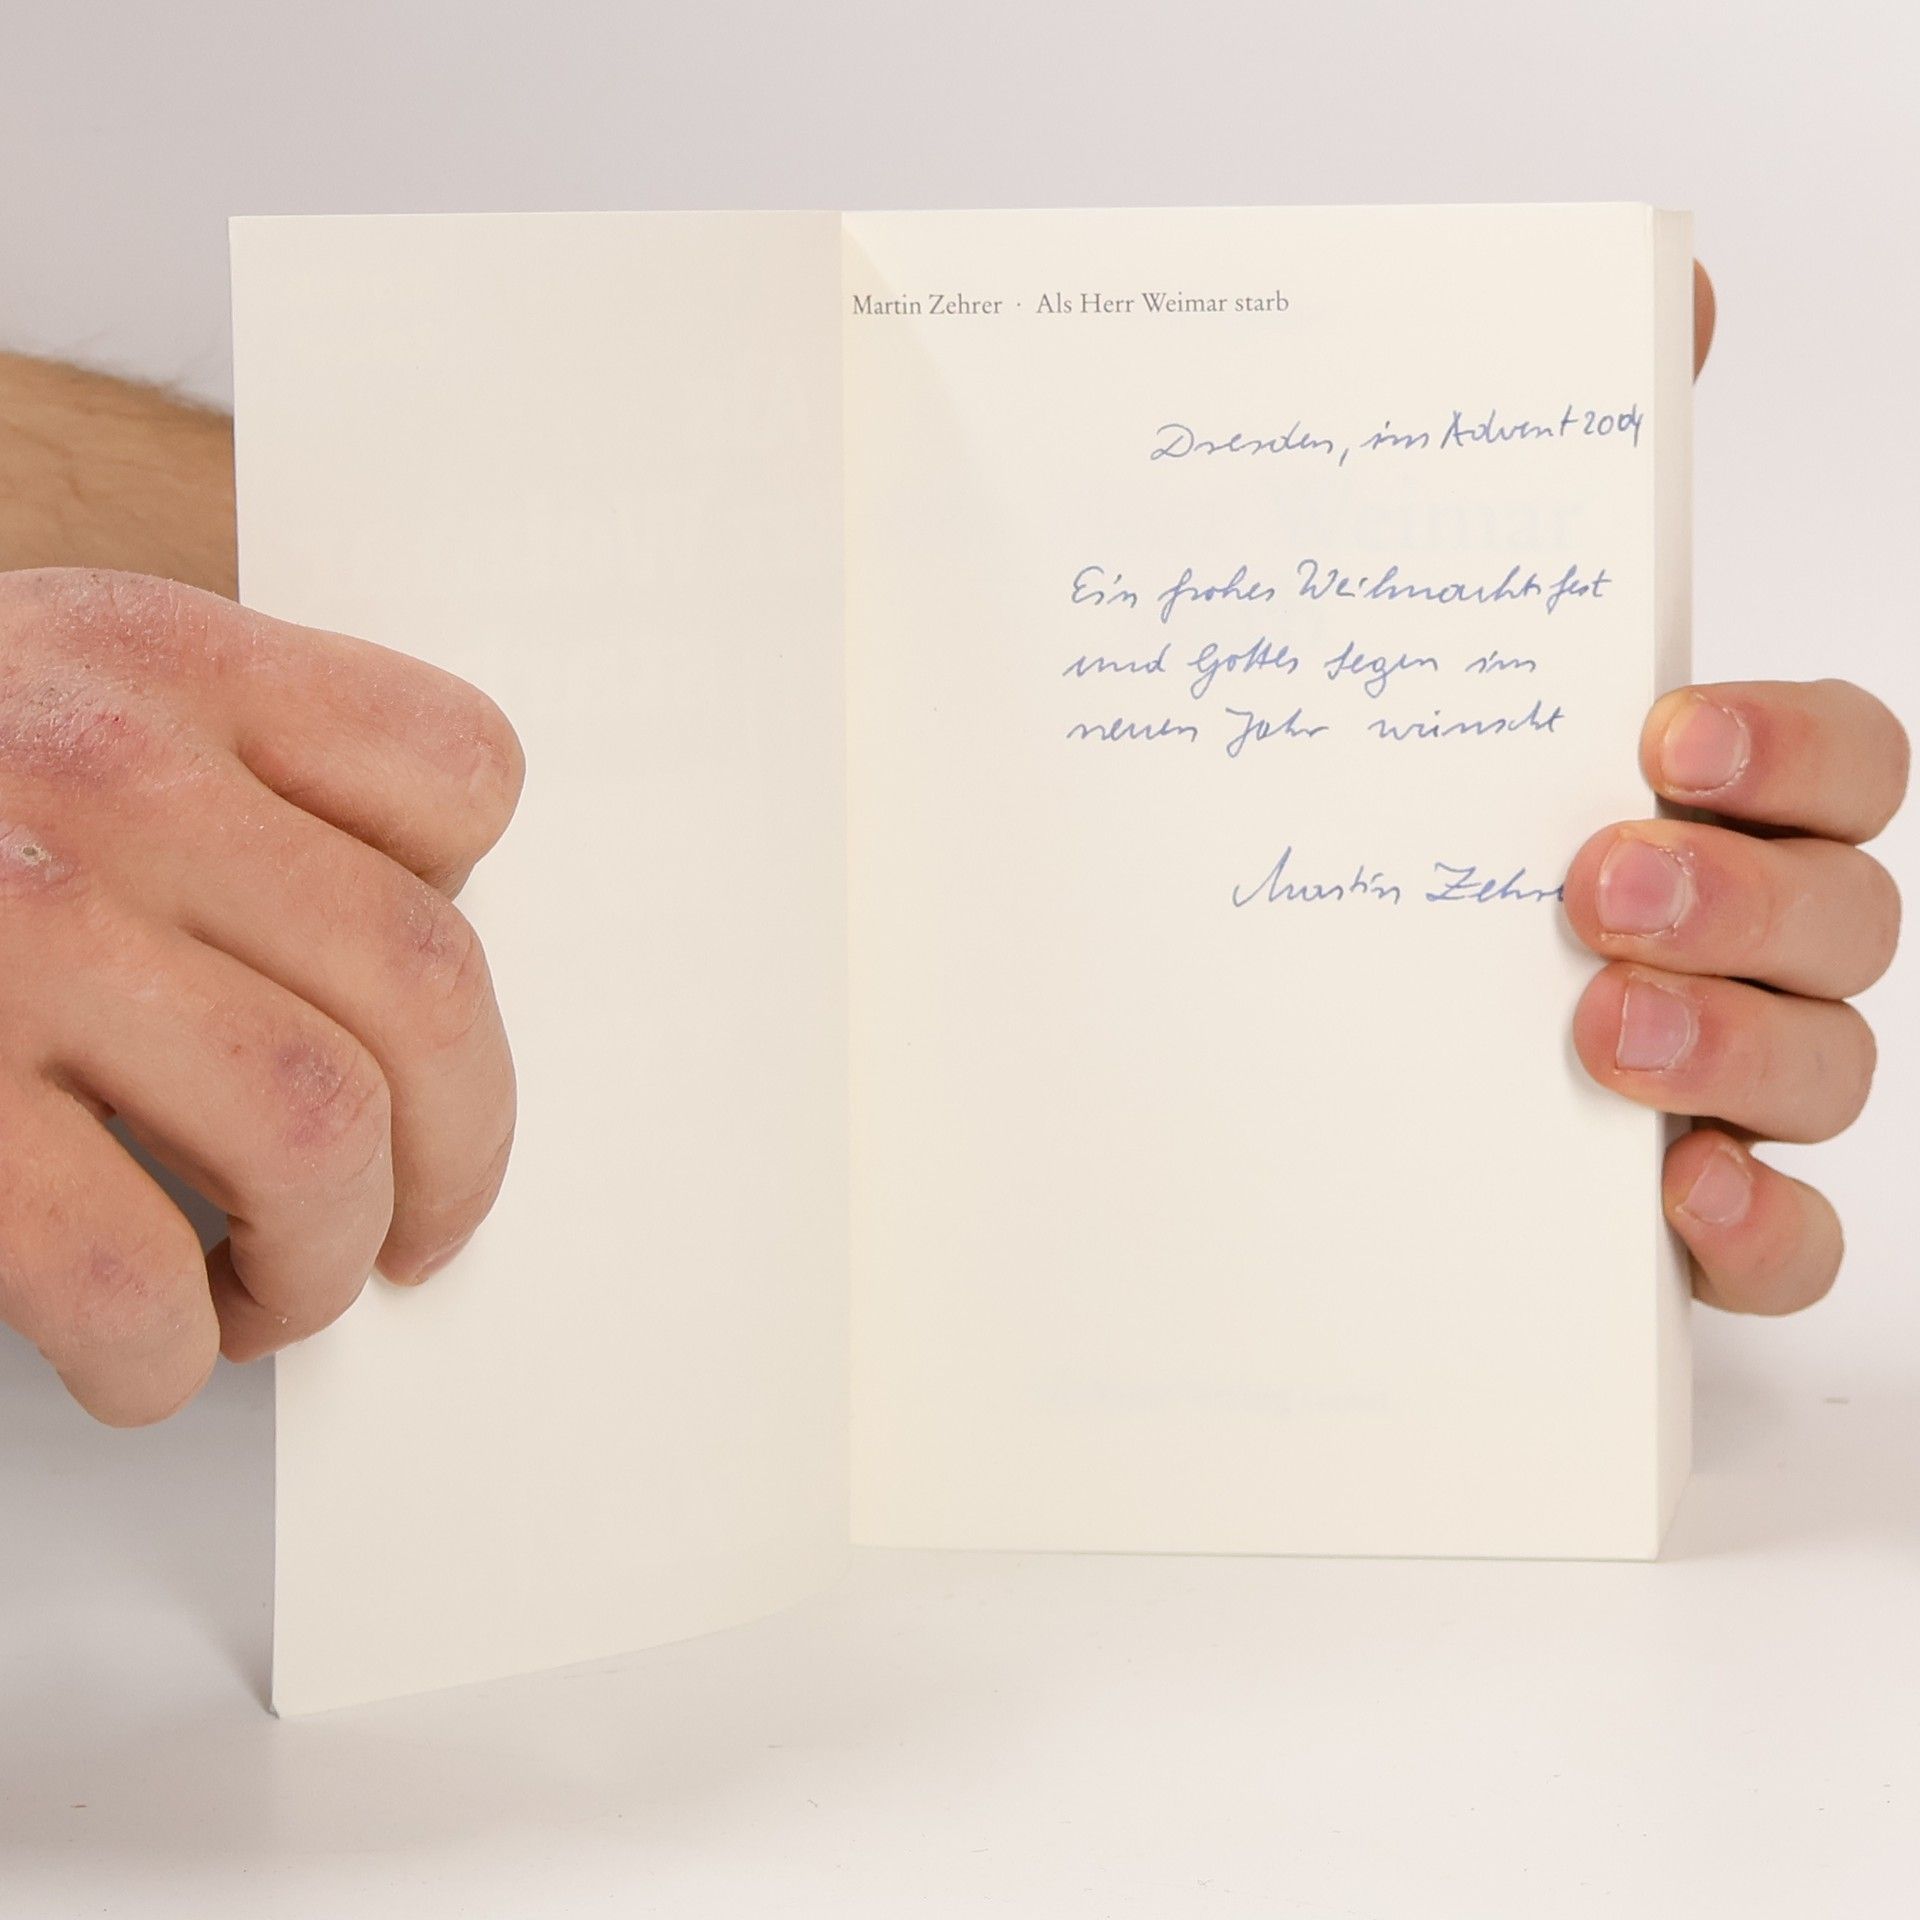 Martin Zehrer · Als Herr Weimar starb
Dresden, im Advent 2004
Ein frohes Weihnachtsfest
und Gottes Segen im
neuen Jahr wünscht
Martin Zehre